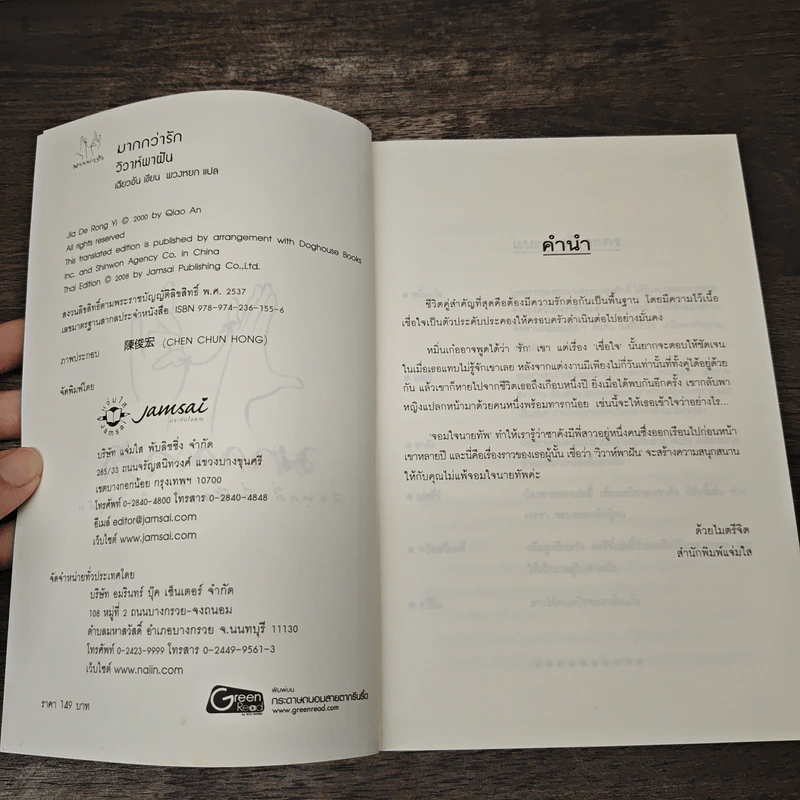 มากกว่ารัก
วิวาห์พาฝัน
เฉียวอัน เขียน พวงหยก แปล
Jia De Rong Yi © 2000 by Qiao An
All rights reserved
This translated edition is published by arrangement with Doghouse Books
Inc. and Shinwon Agency Co. in China
Thai Edition © 2008 by Jamsai Publishing Co.,Ltd.
สงวนลิขสิทธิ์ตามพระราชบัญญัติลิขสิทธิ์ พ.ศ. 2537
เลขมาตรฐานสากลประจำหนังสือ ISBN 978-974-236-155-6
ภาพประกอบ 陳俊宏 (CHEN CHUN HONG)
จัดพิมพ์โดย
แจ่มใส Jamsai
Jamsai
บริษัท แจ่มใส พับลิชชิ่ง จำกัด
285/33 ถนนจรัญสนิทวงศ์ แขวงบางขุนศรี
เขตบางกอกน้อย กรุงเทพฯ 10700
โทรศัพท์ 0-2840-4800 โทรสาร 0-2840-4848
อีเมล์ editor@jamsai.com
เว็บไซต์ www.jamsai.com
จัดจำหน่ายทั่วประเทศโดย
บริษัท อมรินทร์ บุ๊ค เซ็นเตอร์ จำกัด
108 หมู่ที่ 2 ถนนบางกรวย-จงถนอม
ตำบลมหาสวัสดิ์ อำเภอบางกรวย จ.นนทบุรี 11130
โทรศัพท์ 0-2423-9999 โทรสาร 0-2449-9561-3
เว็บไซต์ www.naiin.com
ราคา 149 บาท
Green Read
พิมพ์บน
กระดาษถนอมสายตากรีนรี้ด
www.greenread.com
คำนำ
ชีวิตคู่สำคัญที่สุดคือต้องมีความรักต่อกันเป็นพื้นฐาน โดยมีความไว้เนื้อ
เชื่อใจเป็นตัวประคับประคองให้ครอบครัวดำเนินต่อไปอย่างมั่นคง
หมิ่นเก๋ออาจพูดได้ว่า 'รัก' เขา แต่เรื่อง 'เชื่อใจ' นั้นยากจะตอบให้ชัดเจน
ในเมื่อเธอแทบไม่รู้จักเขาเลย หลังจากแต่งงานมีเพียงไม่กี่วันเท่านั้นที่ทั้งคู่ได้อยู่ด้วย
กัน แล้วเขาก็หายไปจากชีวิตเธอถึงเกือบหนึ่งปี ยิ่งเมื่อได้พบกันอีกครั้ง เขากลับพา
หญิงแปลกหน้ามาด้วยคนหนึ่งพร้อมทารกน้อย เช่นนี้จะให้เธอเข้าใจว่าอย่างไร...
'จอมใจนายทัพ' ทำให้เรารู้ว่าซาดังมีพี่สาวอยู่หนึ่งคนซึ่งออกเรือนไปก่อนหน้า
เขาหลายปี และนี่คือเรื่องราวของเธอผู้นั้น เชื่อว่า 'วิวาห์พาฝัน' จะสร้างความสนุกสนาน
ให้กับคุณไม่แพ้จอมใจนายทัพค่ะ
ด้วยไมตรีจิต
สำนักพิมพ์แจ่มใส